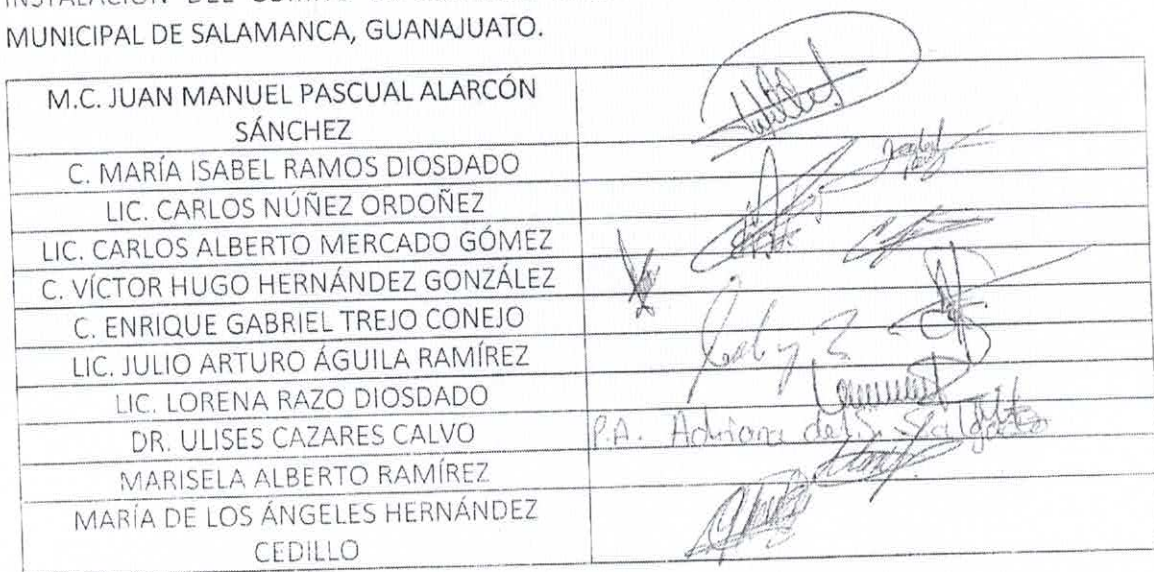 INSTALACIÓN DEL
MUNICIPAL DE SALAMANCA, GUANAJUATO.
M.C. JUAN MANUEL PASCUAL ALARCÓN
SÁNCHEZ
C. MARÍA ISABEL RAMOS DIOSDADO
LIC. CARLOS NÚÑEZ ORDOÑEZ
LIC. CARLOS ALBERTO MERCADO GÓMEZ
C. VÍCTOR HUGO HERNÁNDEZ GONZÁLEZ
C. ENRIQUE GABRIEL TREJO CONEJO
LIC. JULIO ARTURO ÁGUILA RAMÍREZ
LIC. LORENA RAZO DIOSDADO
DR. ULISES CAZARES CALVO
P.A. Adriana del S. Salgado
MARISELA ALBERTO RAMÍREZ
MARÍA DE LOS ÁNGELES HERNÁNDEZ
CEDILLO